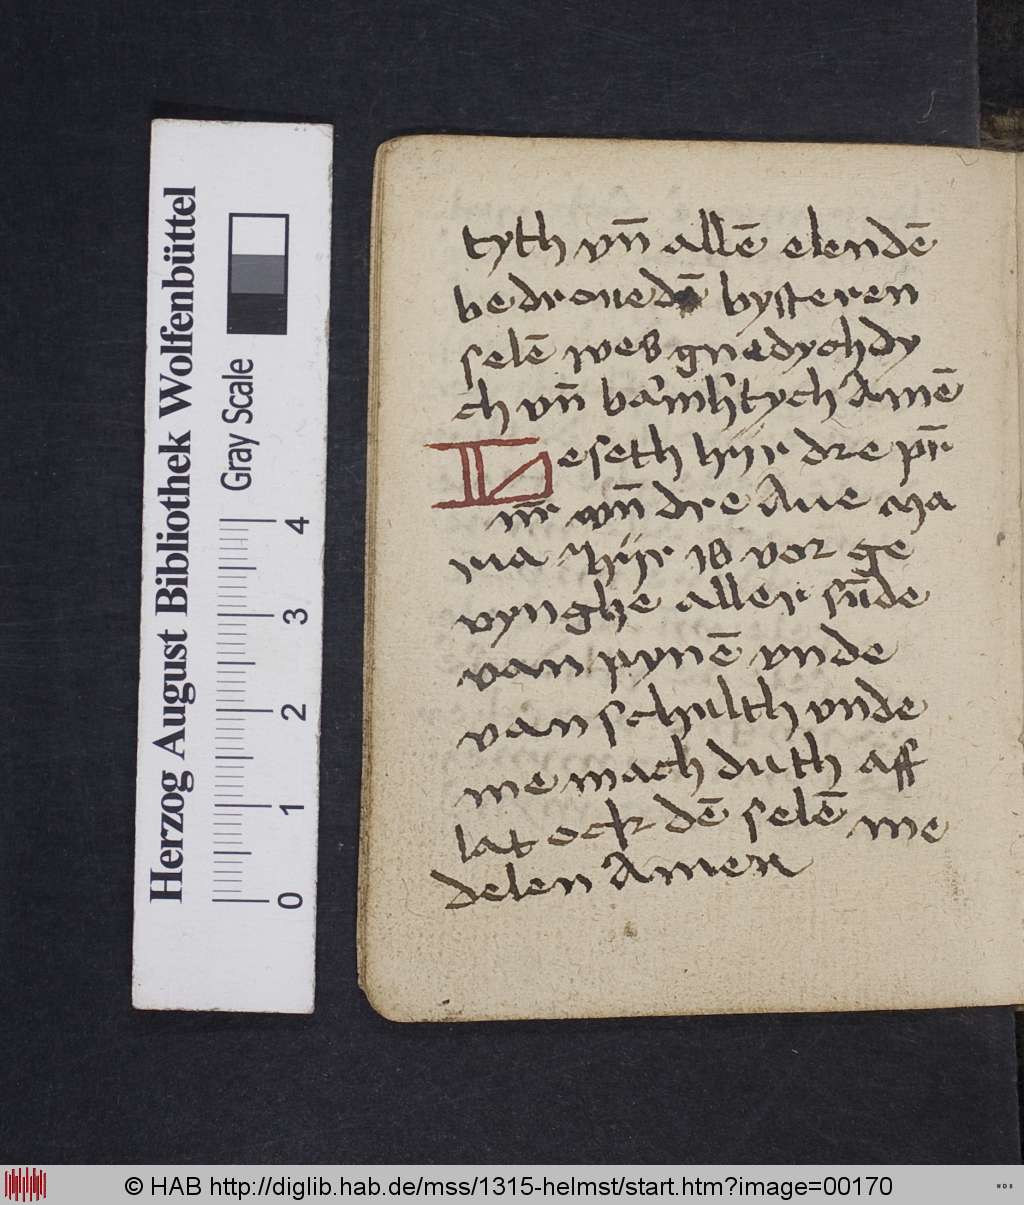 tyth vn̄ allē elendē
bedrouedē bysteren
selē wes gnedychdy
ch vn̄ barmh'tych Amē
Leseth hyr dre pr̄
nr̄ vn̄ dre Aue Ma
ria Hyr is vor ge
vynghe aller sūde
van pynē vnde
van schulth vnde
me mach duth aff
lat ock dē selē me
delen Amen
Herzog August Bibliothek Wolfenbüttel
Gray Scale
0 1 2 3 4
© HAB http://diglib.hab.de/mss/1315-helmst/start.htm?image=00170